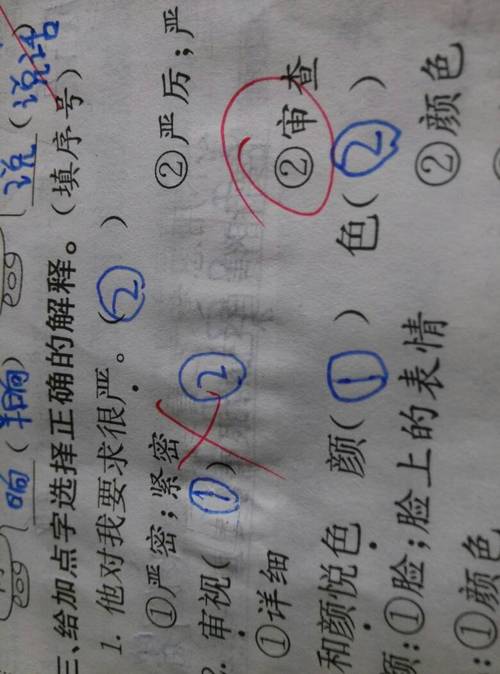 响(影响) 说(说话)
三、给加点字选择正确的解释。(填序号)
1. 他对我要求很严。(②)
①严密;紧密 ②严厉;严
2. 审视(①) ②
①详细 ②审查
和颜悦色 颜(①) 色(②)
颜:①脸;脸上的表情 ②颜色
:①颜色